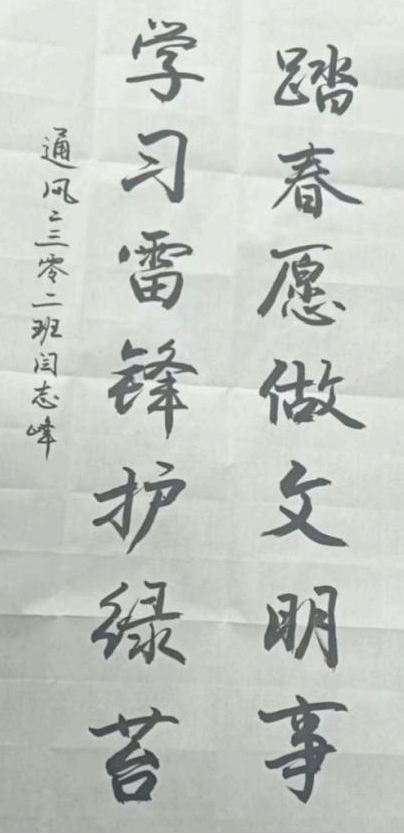 踏春愿做文明事
学习雷锋护绿苔
通风二三零二班闫志峰